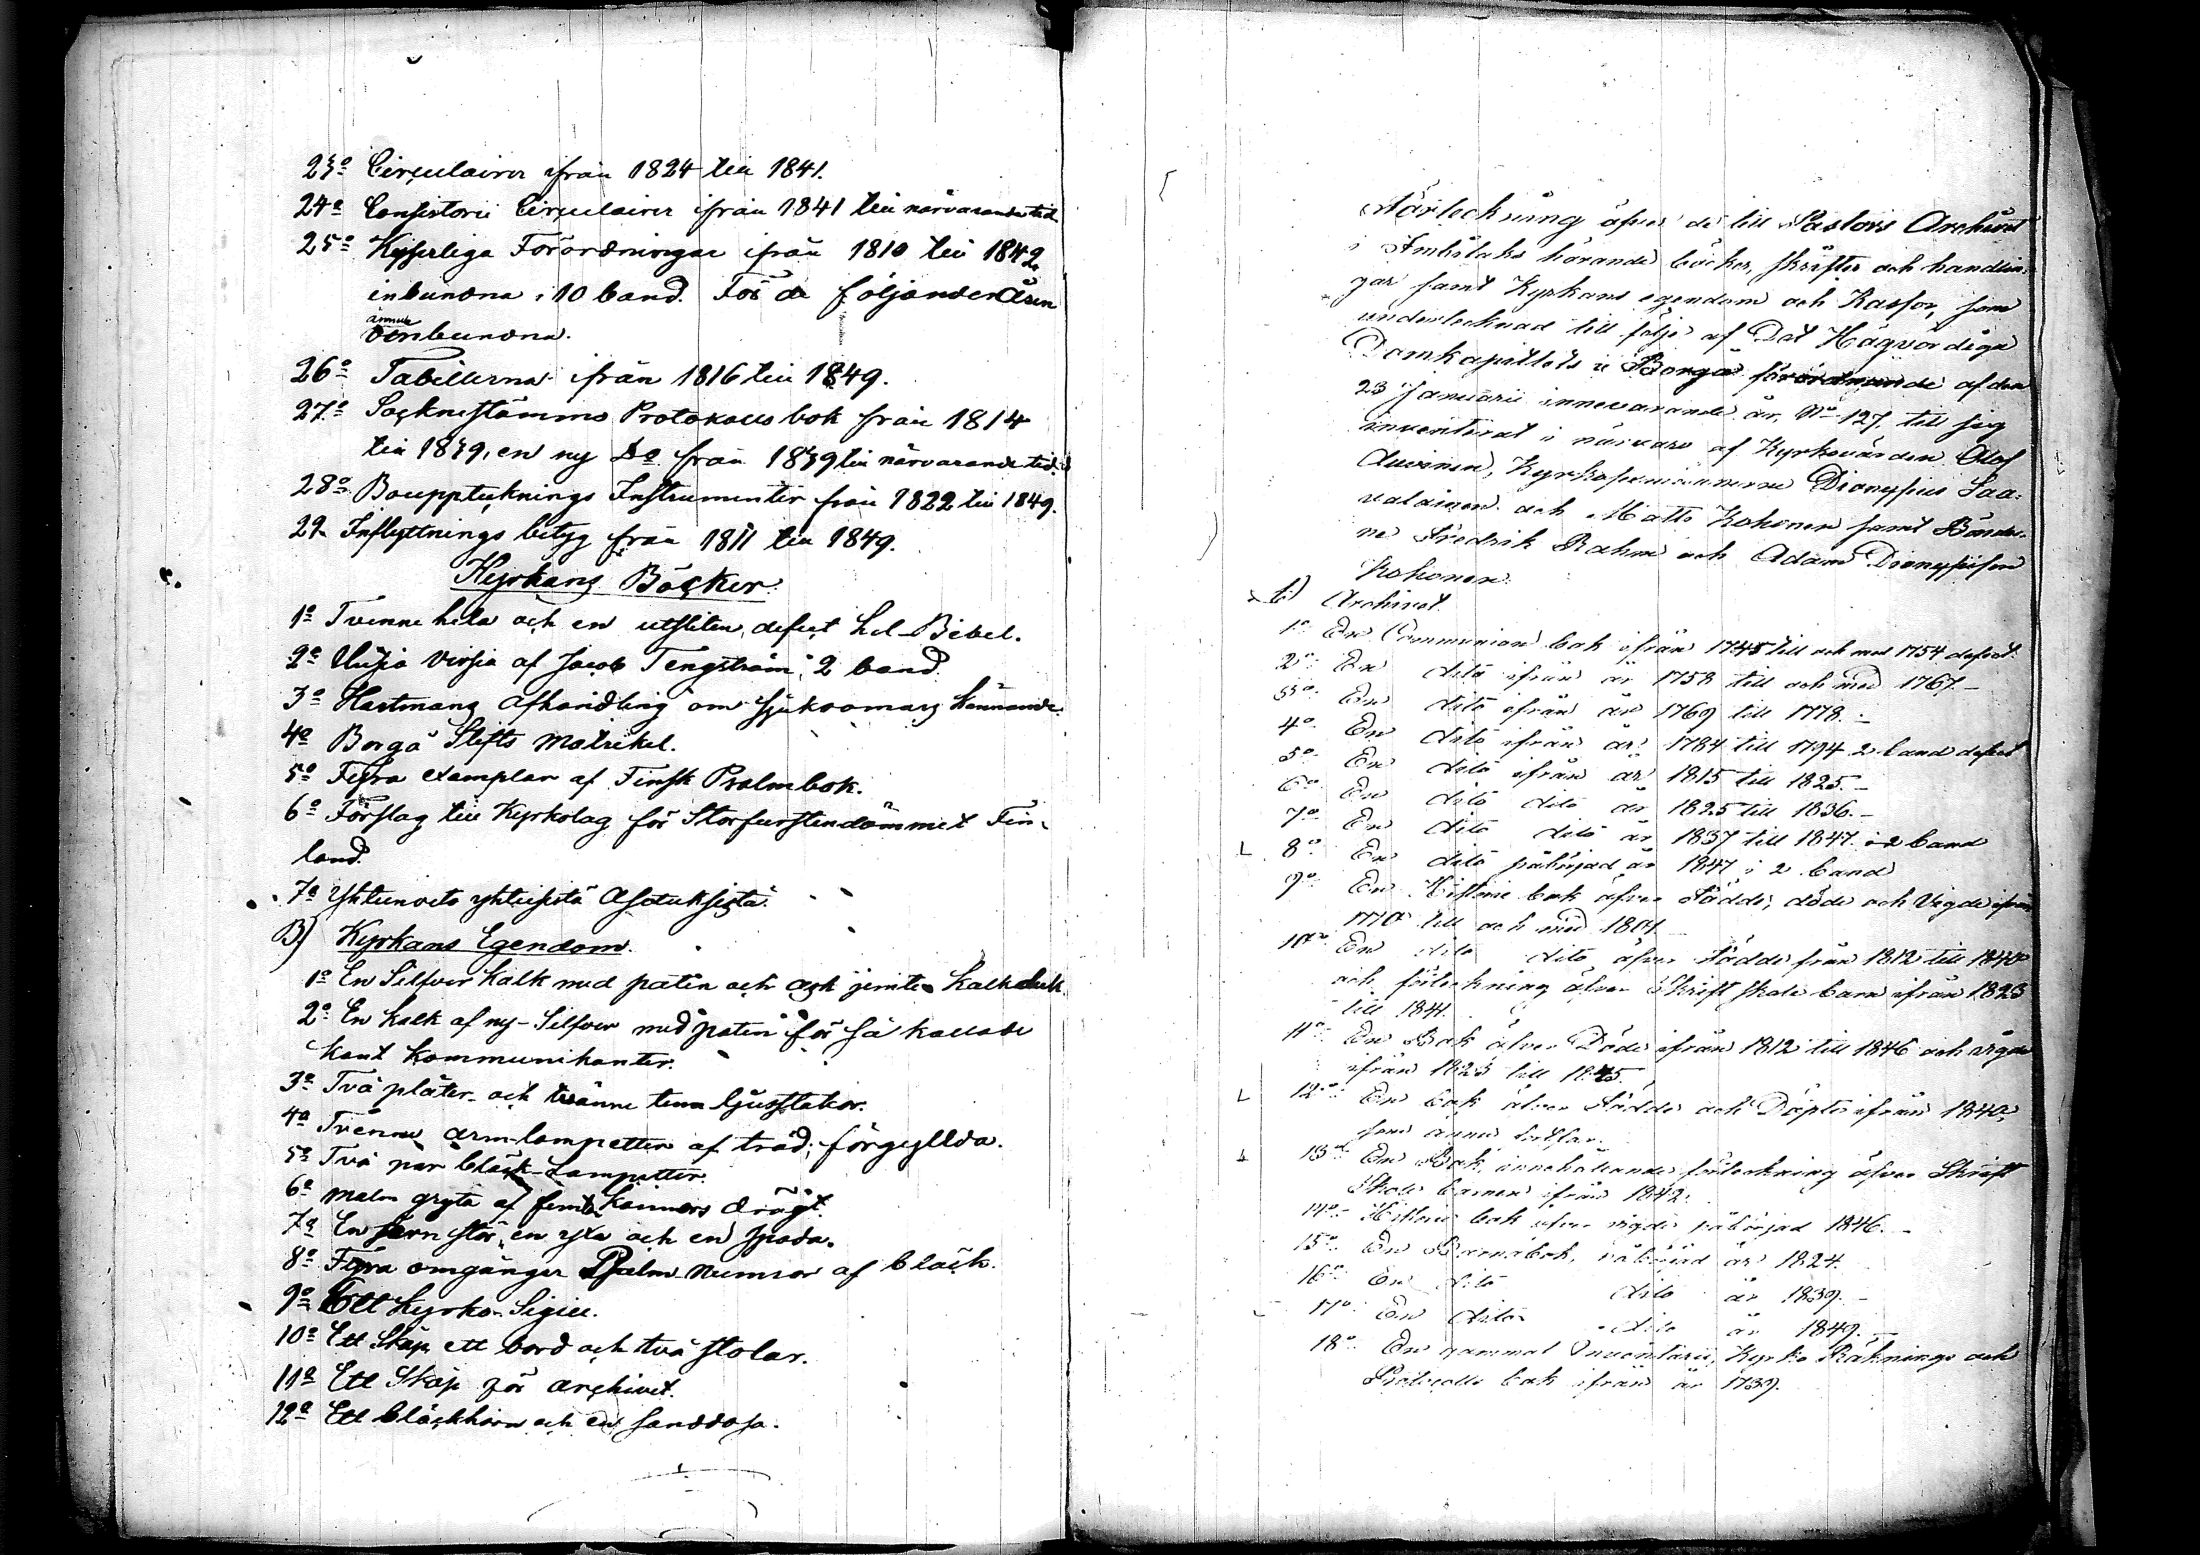 23º Circulairer ifrån 1824 till 1841.
24º Consistorii Circulairer ifrån 1841 till närvarande tid
25º Kejserliga Förordningar ifrån 1810 till 1842
inbundna i 10 band. För de följande åren
ännu
oinbundna.
26º Tabellerna ifrån 1816 till 1849.
27º Socknestämmo Protokolls bok från 1814
till 1839, en ny Do från 1839 till närvarande tid.
28º Bouppteknings Instrumenter från 1822 till 1849.
29. Inflyttnings betyg från 1811 till 1849.
Kyrkans Böcker.
1º Tvenne hela och en utsliten, defect hel Bibel.
2º Uusia Virsiä af Jacob Tengström, 2 band.
3º Hartmans Afhandling om sjukdomars kännande.
4º Borgå Stifts Matrikel.
5º Fyra exemplar af Finsk Psalmbok.
6º Förslag till Kyrkolag för Storfurstendömmet Fin-
land.
7º Yhteinveto yhteisistä Asetuksista.
B) Kyrkans Egendom.
1º En Silfver kalk med paten och ask jemte kalkduk.
2º En kalk af ny-Silfver med paten för så kallade
kommunikanter.
3º Två plåter och tvänne tenn ljusstakar.
4º Tvenne arm-lampetter af träd, förgyllda.
5º Två par bläck-Lampetter.
6º Malm gryta af femb kannors drägt.
7º En jern stör, en yxa och en spada.
8º Fyra omgångar Psalm Numror af bläck.
9º Ett Kyrko-Sigill.
10º Ett Skåp ett bord och två stolar.
11º Ett Skåp för archivet.
12º Ett bläckhorn och en sanddosa.
Förteckning öfver de till Pastors Archivet
i Ambetaks hörande böcker, skrifter och handlin-
gar samt Kyrkans egendom och Kassor, som
undertecknad till följe af Det Högvördiga
Domkapitlets i Borgå förordnande af den
23 Januarii innevarande år, No 127, till sig
inventerat i närvaro af Kyrkovärden Olof
Auvinen, Kyrkosexmännerne Dionysius Saa-
valainen och Matts Kokonen samt Bönder-
ne Fredrik Rahm och Adam Dionysisson
Kokonen.
Archivet.
1º En Communion bok ifrån 1745 till och med 1754 defect.
2º En dito ifrån år 1758 till och med 1767.-
3º En dito ifrån år 1769 till 1778.-
4º En dito ifrån år 1784 till 1794 2 band defect
5º En dito ifrån år 1815 till 1825.-
6º En dito dito år 1825 till 1836.-
7º En dito dito år 1837 till 1847 i 2 band
8º En dito påbörjad år 1847 i 2 band
9º En Historie bok öfver Födde, döde och Vigde ifrån
1770 till och med 1801.
10º En dito dito öfver Födde från 1812 till 1840
och förteckning öfver Skriftskole barn ifrån 1823
till 1841.
11º En Bok öfver Döde ifrån 1812 till 1846 och vigde
ifrån 1823 till 1845.
12º En bok öfver Födde och Döpte ifrån 1840,
som ännu
13º En Bok, innehållande förteckning öfver Skrift
Skole barnen ifrån 1842.
14º Historie bok öfver vigde påbörjad 1846.-
15º En Barnabok, påbörjad år 1824.
16º En dito dito år 1839.-
17º En dito dito år 1849.-
18º En gammal Inventarii, Kyrko Räknings och
Protocolls bok ifrån år 1739.